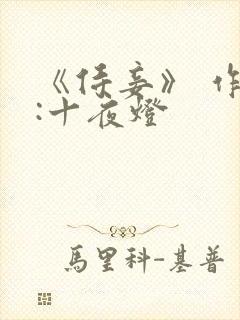 《侍妾》 作
:十夜燈
馬里科-基普